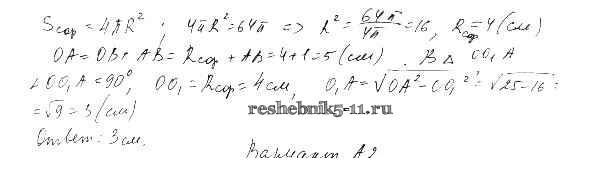 Sсф = 4πR² ; 4πR² = 64π => R² = 64π/4π = 16, Rсф = 4 (см)
OA = OB + AB = Rсф + AB = 4 + 1 = 5 (см). В Δ OO₁A
∠OO₁A = 90°, OO₁ = Rсф = 4 см, O₁A = √OA² - OO₁² = √25 - 16 =
= √9 = 3 (см)
reshebnik5-11.ru
Ответ: 3 см.
Вариант А2